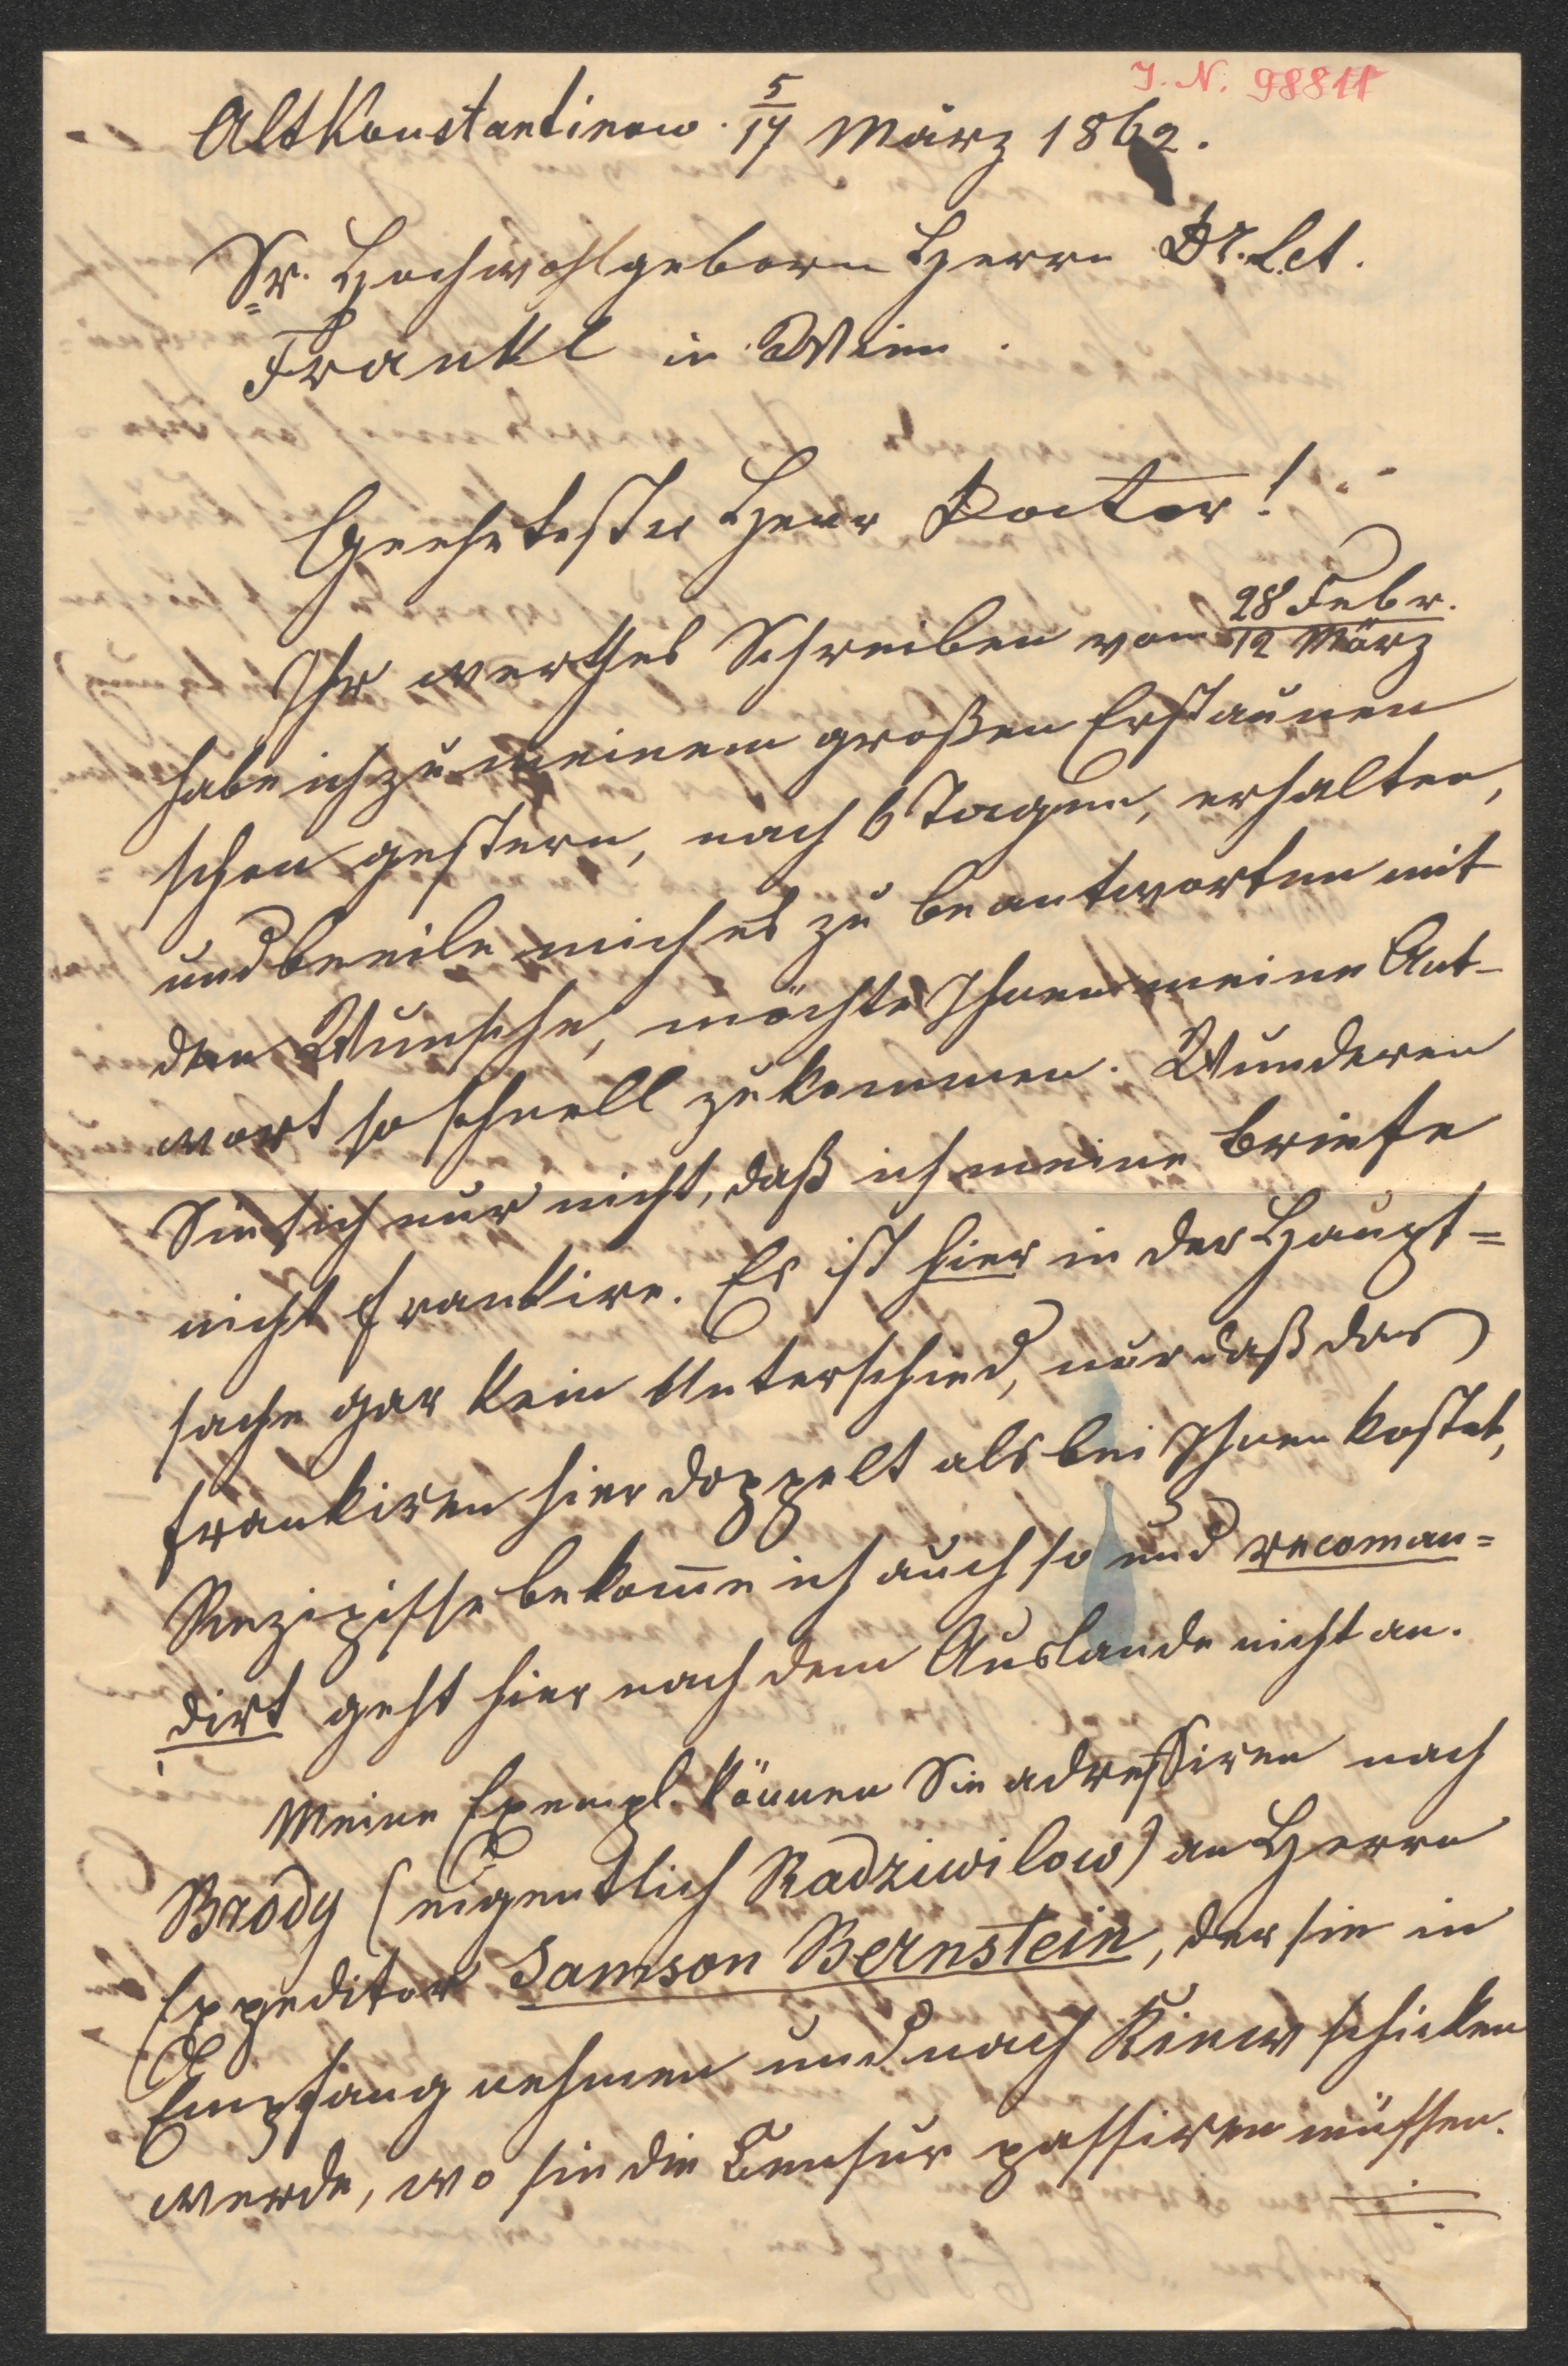 J. N. 98811
AltKonstantinow 5/17 März 1862.
Sr. Hochwohlgeborn Herrn Dr. L. A.
Frankl in Wien.
Geehrtester Herr Doctor!
Ihr werthes Schreiben vom 28 Febr./12 März
habe ich zu meinem großen Erstaunen
schon gestern, nach 6 Tagen, erhalten,
und beeile mich es zu beantworten mit
dem Wunsche, möchte Ihnen meine Ant-
wort so schnell zukommen. Wunderen
Sie sich nur nicht, daß ich meine Briefe
nicht frankire. Es ist hier in der Haupt=
sache gar kein Unterschied, nur daß das
frankiren hier doppelt als bei Ihnen kostet,
Rezipisse bekom̄e ich auch so und recoman=
dirt geht hier nach dem Auslande nicht an.
Meine Exempl. können Sie adressiren nach
Brody (eigentlich Radziwilow) an Herrn
Expeditor Samson Bernstein, der sie in
Empfang nehmen und nach Kiew schicken
werde, wo sie die Censur passiren müssen.